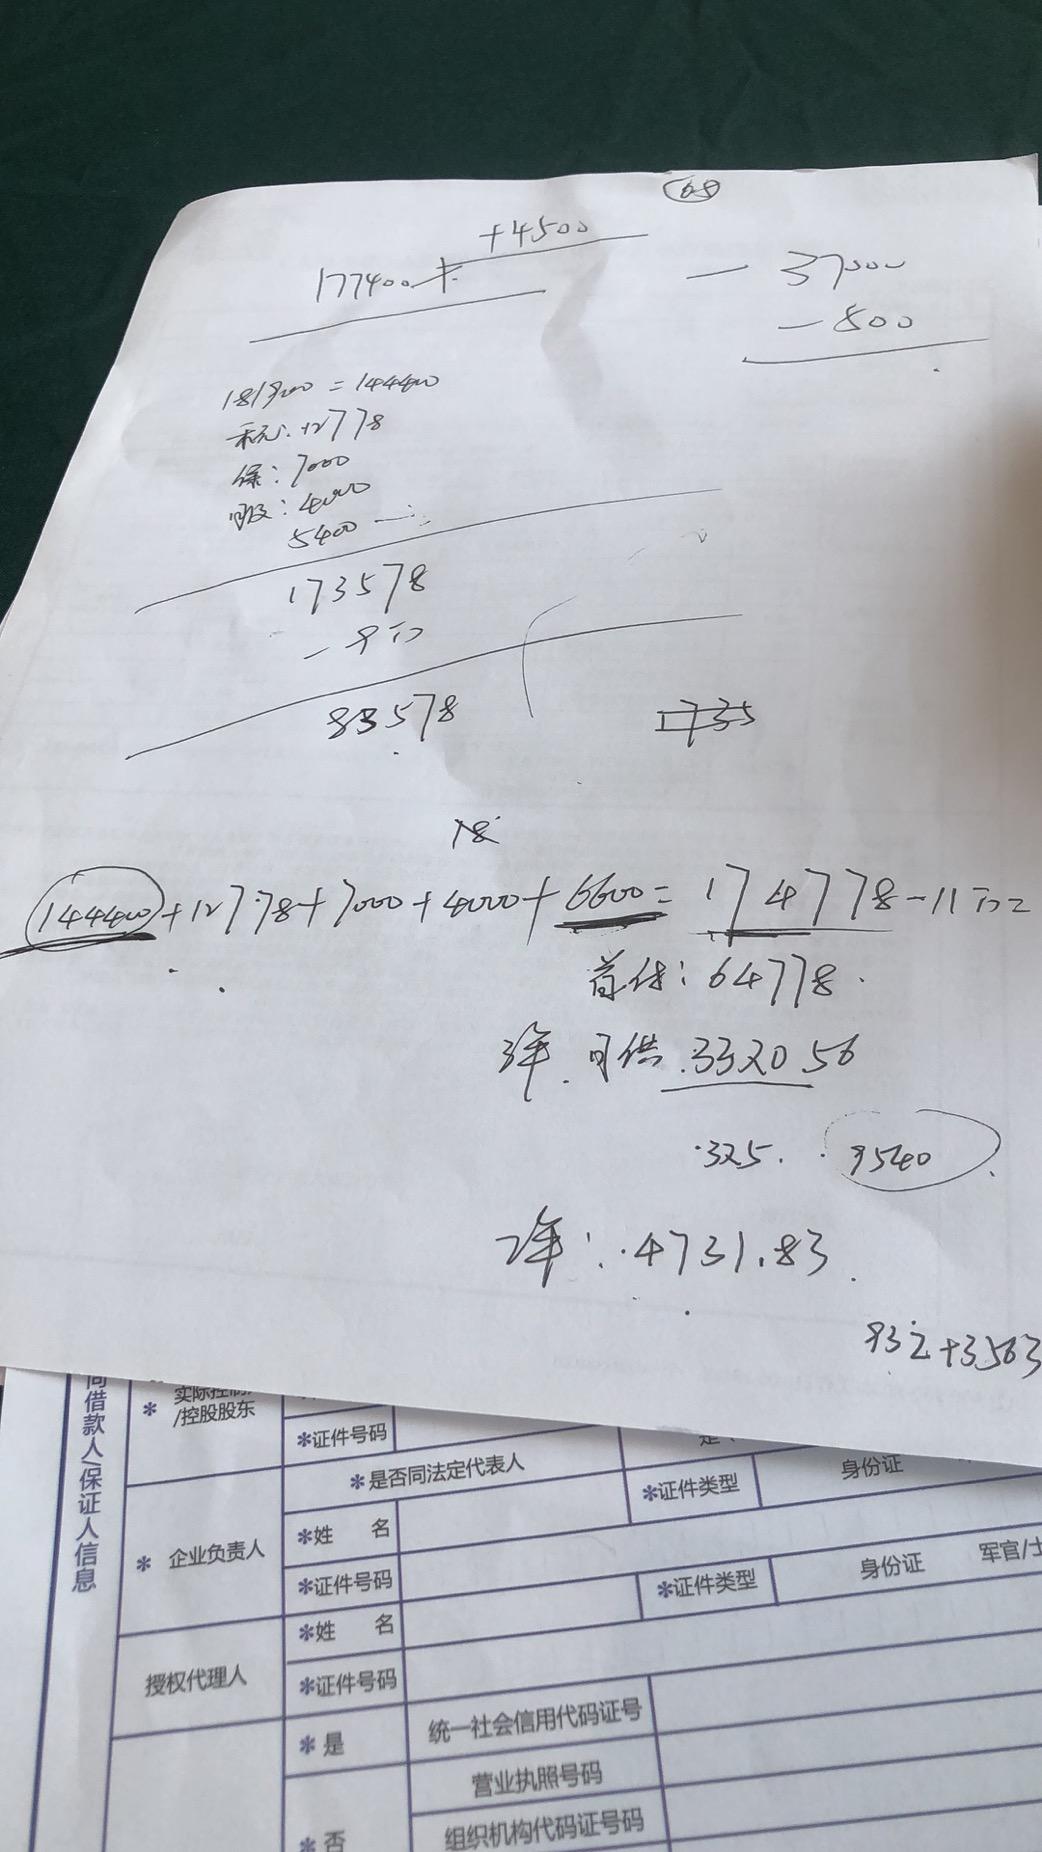 +4500
177400
- 37000
- 500
181900 = 144400
税: 12778
保: 7000
服: 4000
5400
173578
- 9万
83578
1735
144400+12778+7000+4000+6600= 174778-11万=
首付: 64778.
3年 月供 3320.56
325. 9540
2年: 4731.83
932+3563
同借款人/保证人信息
* 实际控制
/控股股东
*证件号码
*是否同法定代表人
*证件类型 身份证
* 企业负责人
*姓 名
*证件号码
*证件类型 身份证 军官/士
授权代理人
*姓 名
*证件号码
*是
统一社会信用代码证号
营业执照号码
*否
组织机构代码证号码